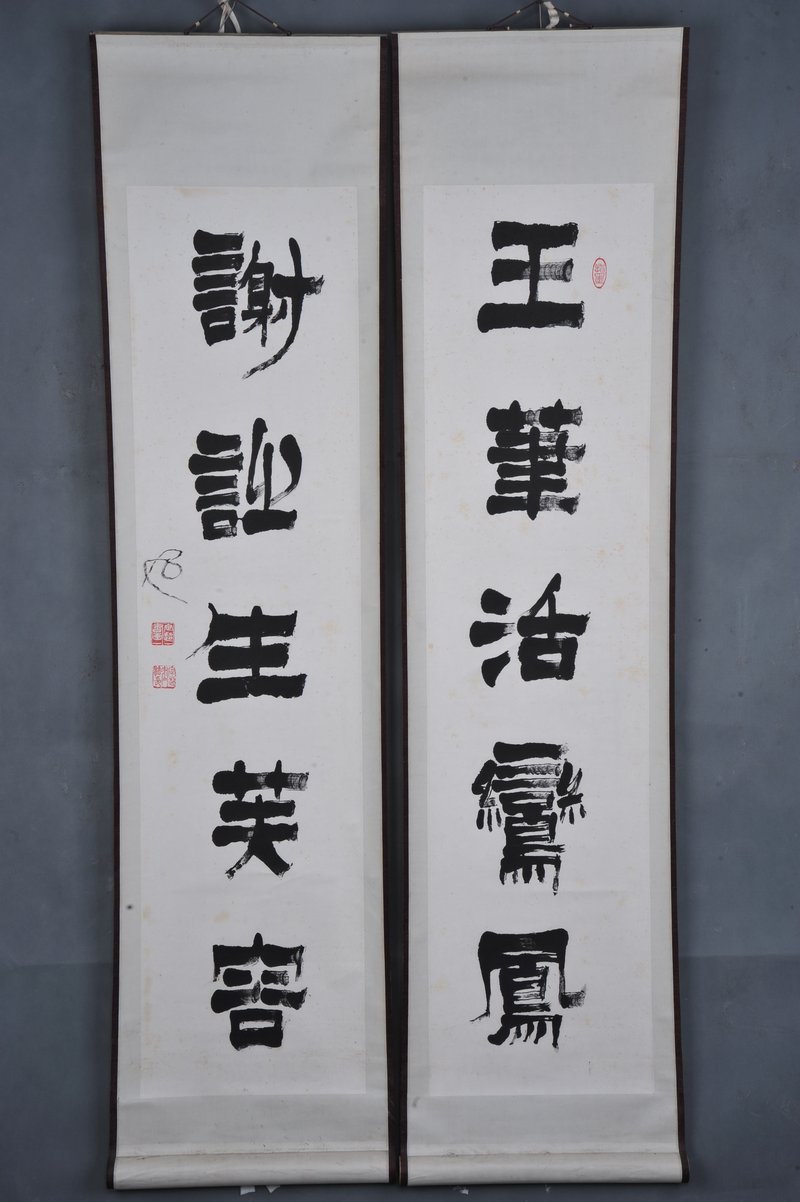 王筆活鸞鳳
謝詩生芙容